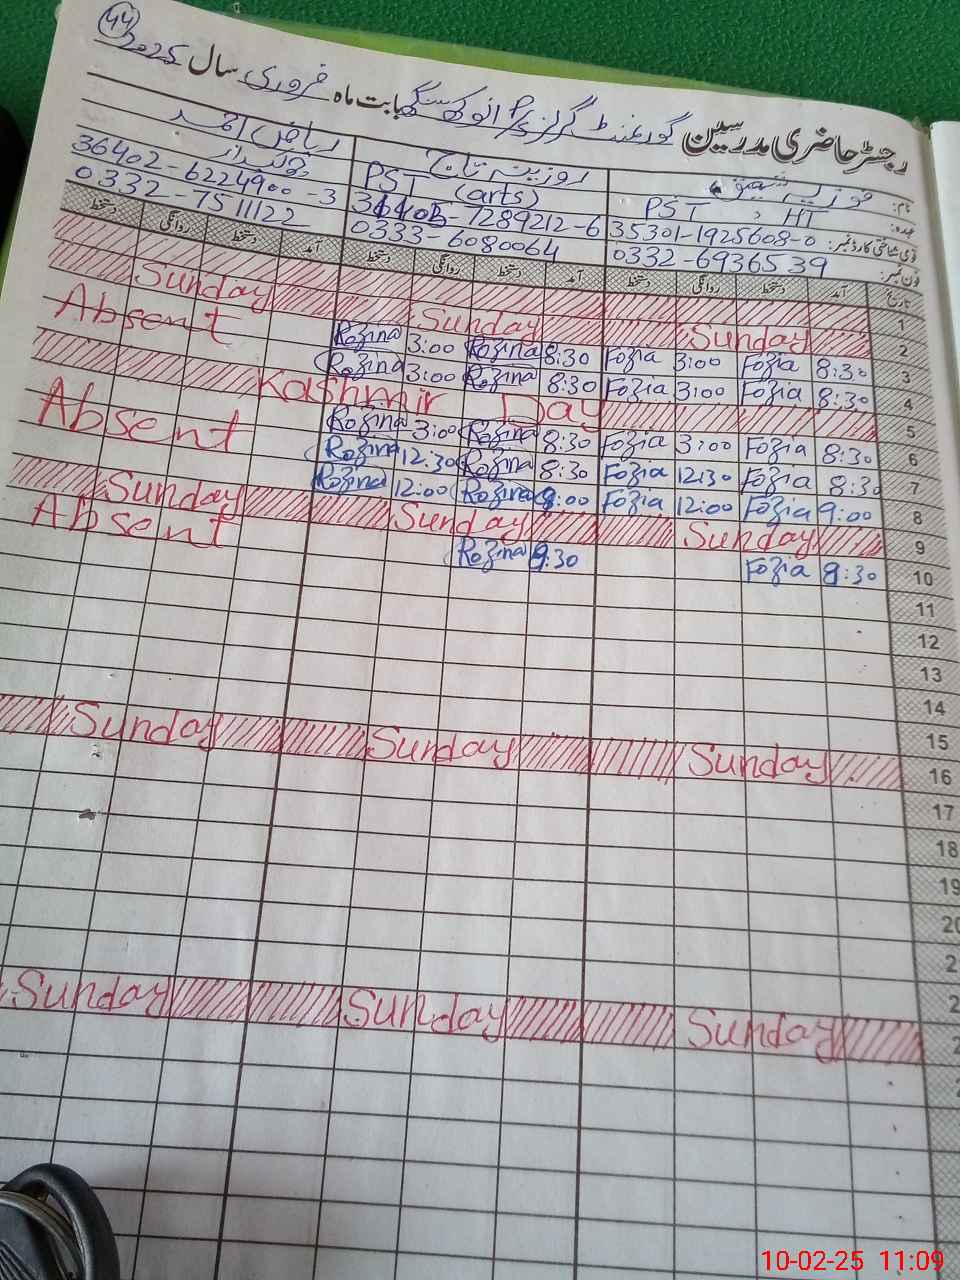 44
رجسٹر حاضری مدرسین گورنمنٹ گرلز P/S انوکھ سنگھ بابت ماہ فروری سال 2025
نام: فوزیہ شفیق روزینہ تاج ریاض احمد
عہدہ: PST , HT PST (arts) چوکیدار
قومی شناختی کارڈ نمبر: 35301-1925608-0 36402-7289212-6 36402-6224900-3
فون نمبر: 0332-6936539 0333-6080064 0332-7511122
تاریخ آمد دستخط روانگی دستخط آمد دستخط روانگی دستخط آمد دستخط روانگی دستخط
1
2 Sunday Sunday Sunday
3 8:30 Fozia 3:00 Fozia 8:30 Rozina 3:00 Rozina Absent
4 8:30 Fozia 3:00 Fozia 8:30 Rozina 3:00 Rozina
5 Kashmir Day
6 8:30 Fozia 3:00 Fozia 8:30 Rozina 3:00 Rozina Absent
7 8:30 Fozia 12:30 Fozia 8:30 Rozina 12:30 Rozina
8 9:00 Fozia 12:00 Fozia 9:00 Rozina 12:00 Rozina
9 Sunday Sunday Sunday
10 8:30 Fozia 8:30 Rozina Absent
11
12
13
14
15
16 Sunday Sunday Sunday
17
18
19
20
2
2 Sunday Sunday Sunday
2
2
10-02-25 11:09